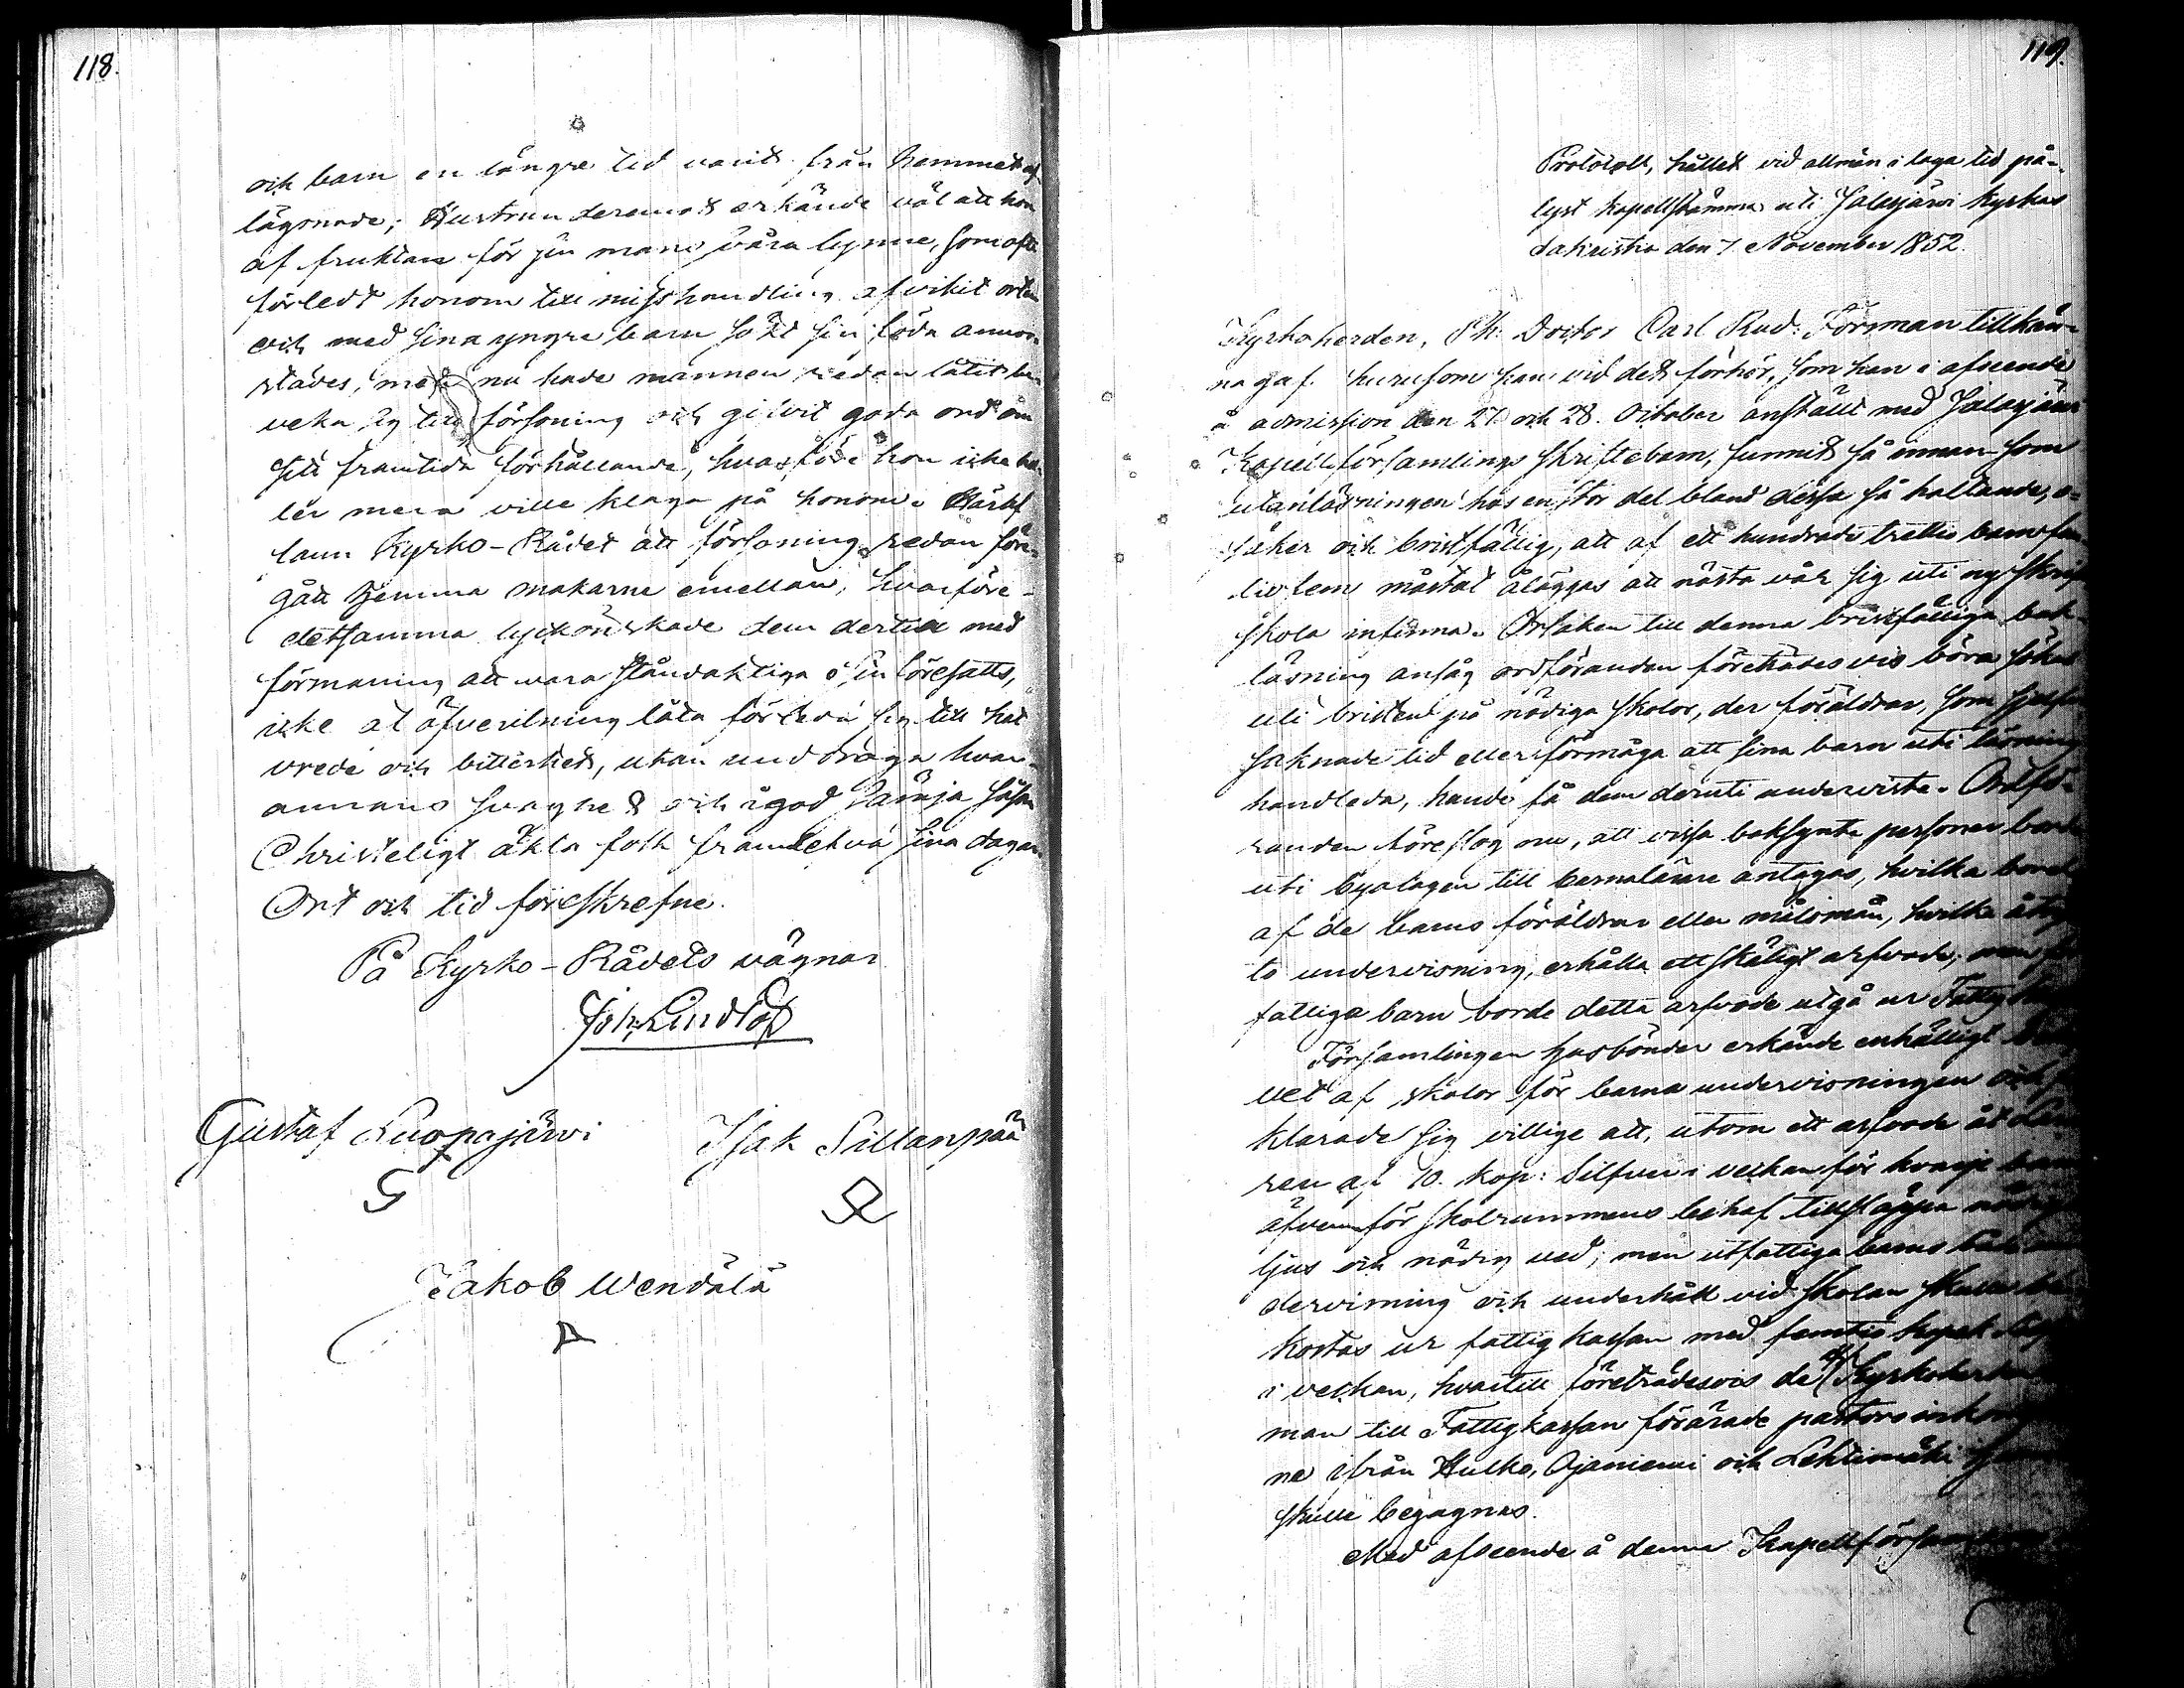 118.
och barn en längre tid varit från hemmet af-
lägsnade; Hustrun deremot erkände väl att hon
af fruktan för sin mans våra lynne, som ofta
förledt honom till misshandling afvikit orten
och med sina yngre barn sökt sin föda annor-
städes, men nu hade mannen redan låtit be-
veka sig till försoning och gifvit goda ord om
sitt framtida förhållande, hvarföre hon icke hel-
ler mera ville klaga på honom. Häraf
fann Kyrko-Rådet att försoning redan före-
gått hemma makarne emellan, hvarföre
detsamma lyckönskade dem dertill med
förmaning att vara ståndaktiga i sin föresatts,
icke at öfverilning låta förleda sig till hat
vrede och bitterhet, utan unddraga hvar-
annans svaghet och i god sämja såsom
Christeligt äkta folk framlefva sina dagar.
Ort och tid föreskrefne.
På Kyrko-Rådets vägnar
Joh. Lindlöf
Gustaf Luopajärvi Isak Sillanpää
Jakob Wendälä
119.
Protocoll, hållet vid allmän i laga tid på-
lyst Kapellstämma uti Jalasjärvi kyrkas
sakristia den 7 November 1852.
Kyrkoherden, Ph: Doctor Carl Rud: Forsman tillkän-
nagaf. hurusom han vid det förhör, som han i afseende
å admission den 27 och 28. October anställt med Jalasjärvi
Kapellförsamlings skriftebarn, funnit så innan- som
utanläsningen hos en stor del bland dessa så haltande, o-
säker och bristfällig, att af ett hundrade trettio barn
tio fem måstat åläggas att nästa vår sig uti ny skrift-
skola infinna. Orsaken till denna bristfälliga bok-
läsning ansåg ordföranden företrädesvis böra sökas
uti bristen på nödiga skolor, der föräldrar, som sjelfva
saknade tid eller förmåga att sina barn uti läsning
handleda, kunde få dem deruti underviste. Ordfö-
randen föreslog nu, att vissa boksynte personer borde
uti byalagen till barnalärare antagas, hvilka borde
af de barns föräldrar eller målsmän, hvilka åtnju-
to undervisning, erhålla ett skäligt arfvode, men för
fattiga barn borde detta arfvode utgå ur Fattig
Församlingen husbönder erkände enhälligt beho-
vet af skolor för barna undervisningen och för-
klarade sig villige att, utom ett arfvode åt Lära-
ren af 10. kop: Silfver i veckan för hvarje barn
äfven för skolrummens behof tillsläppa nödigt
ljus och nödig ved; men utfattiga barns både un-
dervisning och underhåll vid skolan skulle be-
kostas ur fattig kassan med femtio kopek Silfv.
i veckan, hvartill företrädesvis de af Kyrkoherden
man till Fattigkassan förärade pastors inkomster-
ne ifrån Hulko, Ojaniemi och Lehtimäki
skulle begagnas.
Med afseende å denna Kapellförsam